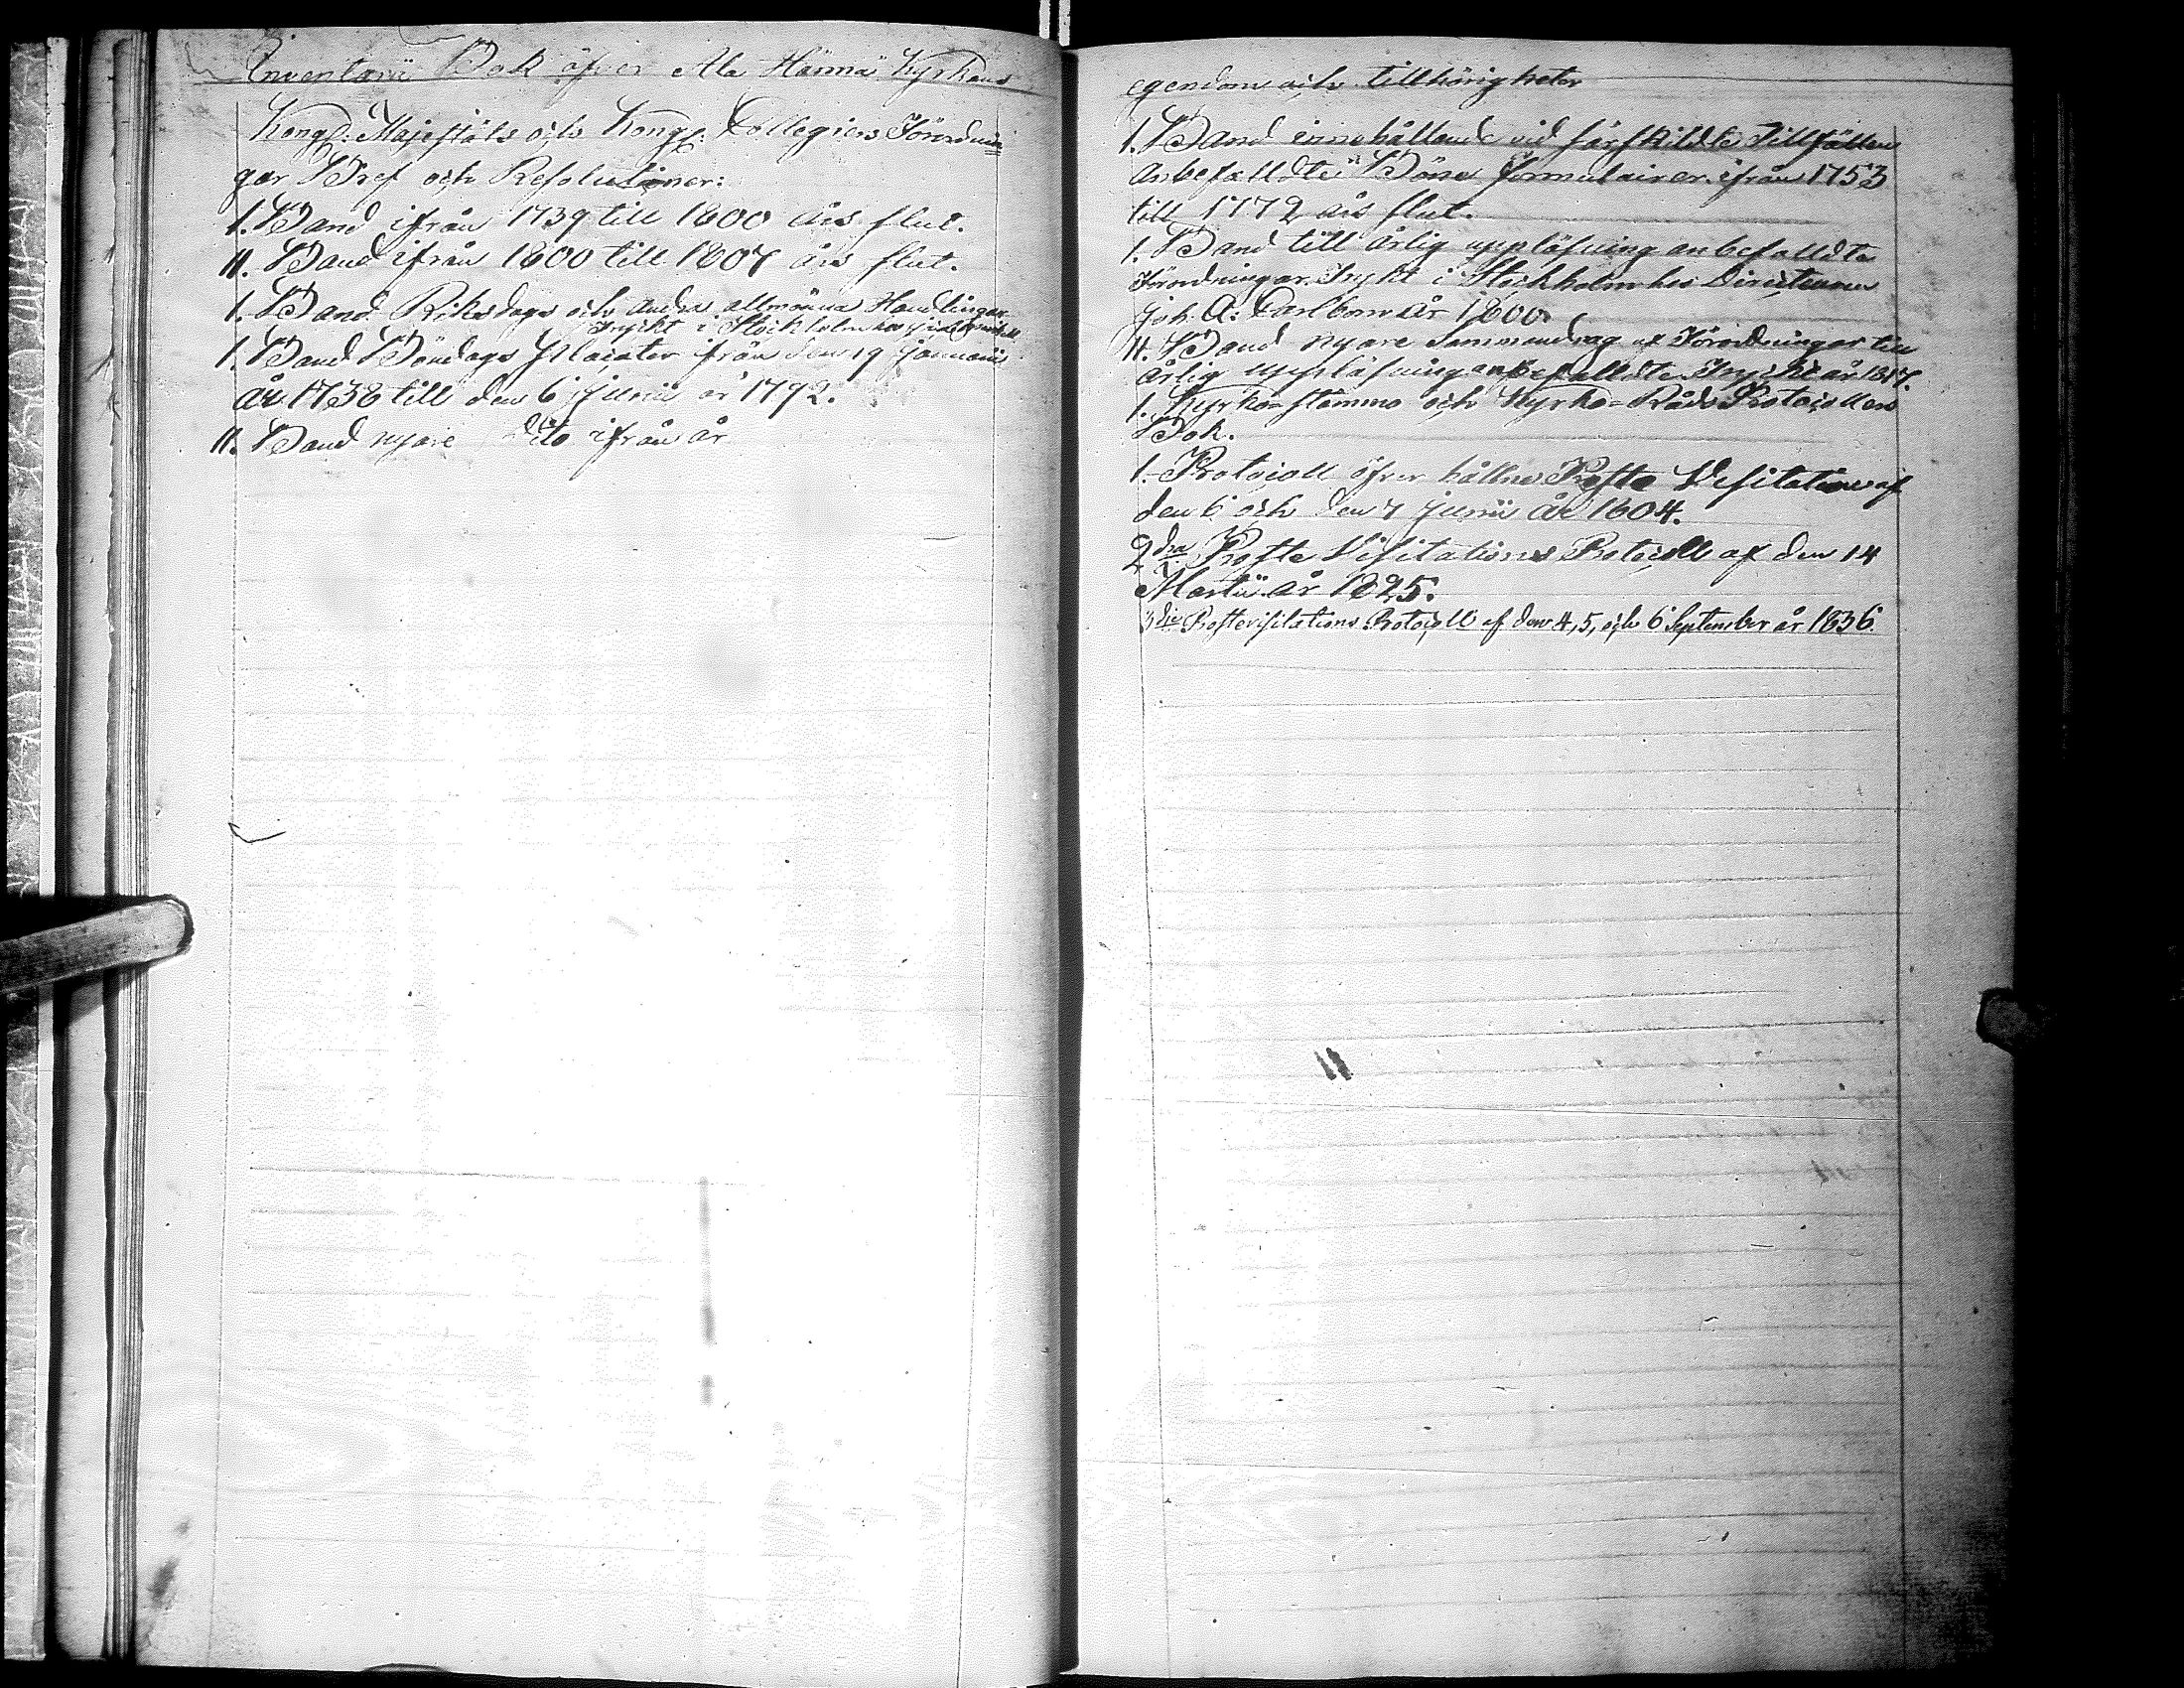 Inventarii Bok öfver Ala Härmä Kyrkans
Kongl: Majestäts och Kongl: Collegiers Förordnin=
gar Bref och Resolutioner:
1. Band ifrån 1739 till 1800 års slut.
11. Band ifrån 1800 till 1807 års slut.
1. Band Riksdags och andra allmänna Handlingar
Tryckt i Stockholm hos
1. Band Böndags Placater ifrån den 19 Januarii
År 1738 till den 6 Junii år 1792.
11. Band nyare Dito ifrån år
egendom och tillhörigheter
1. Band innehållende vid särskildte Tillfällen
Anbefalldte Böne formulairer ifrån 1753
till 1772 års slut.
1. Band till årlig uppläsning anbefalldta
Förordningar Tryckt i Stockholm hos Directeuren
Joh. A: Carlbom År 1800.
11. Band nyare Sammandrag af Förordningar till
årlig uppläsning anbefalldte Tryckt år 1817.
1. Kyrko-stämmo och Kyrko-Råds Protocollers
Bok.
1. Protocoll öfver hållne Proste Visitation af
den 6 och den 7 Junii år 1804.
2dra Proste Visitations Protocoll af den 14
Martii år 1825.
3die Prostevisitations Protocoll af den 4, 5, och 6 September år 1836.